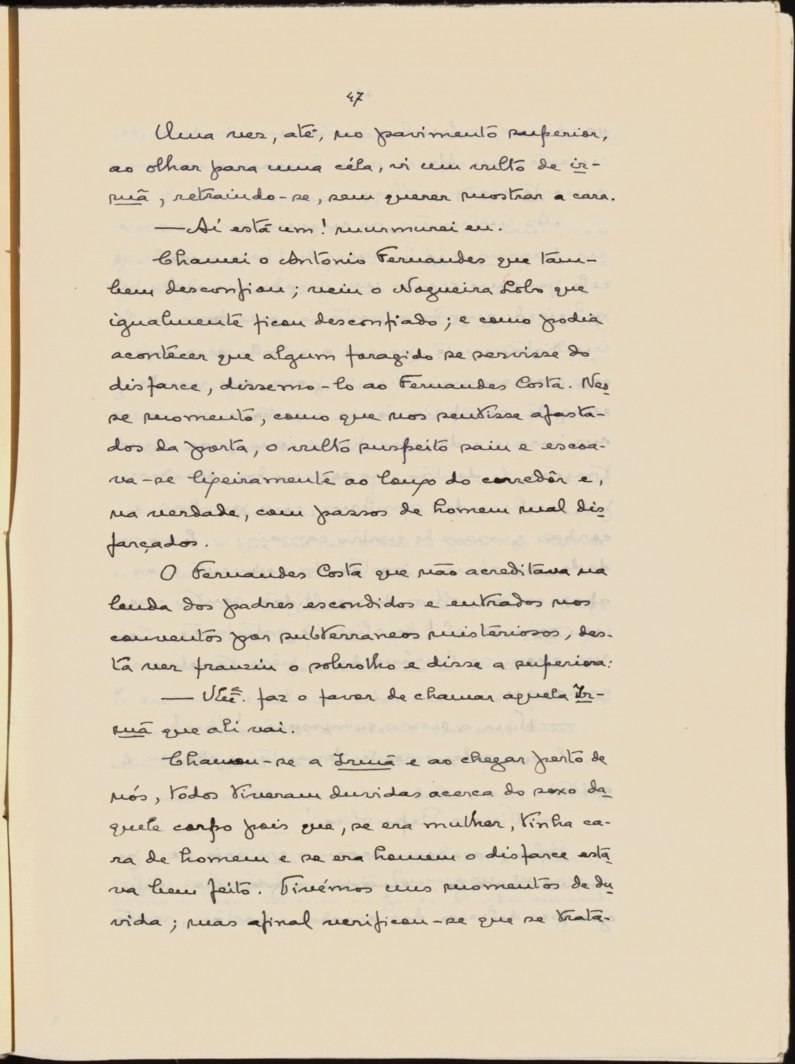 47
Uma vez, até, no pavimento superior,
ao olhar para uma céla, vi um vulto de ir-
mã, retraindo-se, sem querer mostrar a cara.
— Aí está um! murmurei eu.
Chamei o Antonio Fernandes que tam-
bem desconfiou; veiu o Nogueira Lobo que
igualmente ficou desconfiado; e como podia
acontecer que algum foragido se servisse do
disfarce, dissemo-lo ao Fernandes Costa. Nes-
se momento, como que nos sentisse afasta-
dos da porta, o vulto suspeito saiu e escoa-
va-se lijeiramente ao lonjo do corredôr e,
na verdade, com passos de homem mal dis-
farçados.
O Fernandes Costa que não acreditava na
lenda dos padres escondidos e entrados nos
conventos por subterraneos misteriosos, des-
ta vez franziu o sobrolho e disse a superiora:
— V. Ex.ª faz o favor de chamar aquela Ir-
mã que ali vai.
Chamou-se a Irmã e ao chegar perto de
nós, todos tiveram duvidas acerca do sexo da-
quele corpo pois que, se era mulher, tinha ca-
ra de homem e se era homem o disfarce está-
va bem feito. Tivémos uns momentos de du-
vida; mas afinal verificou-se que se trata-